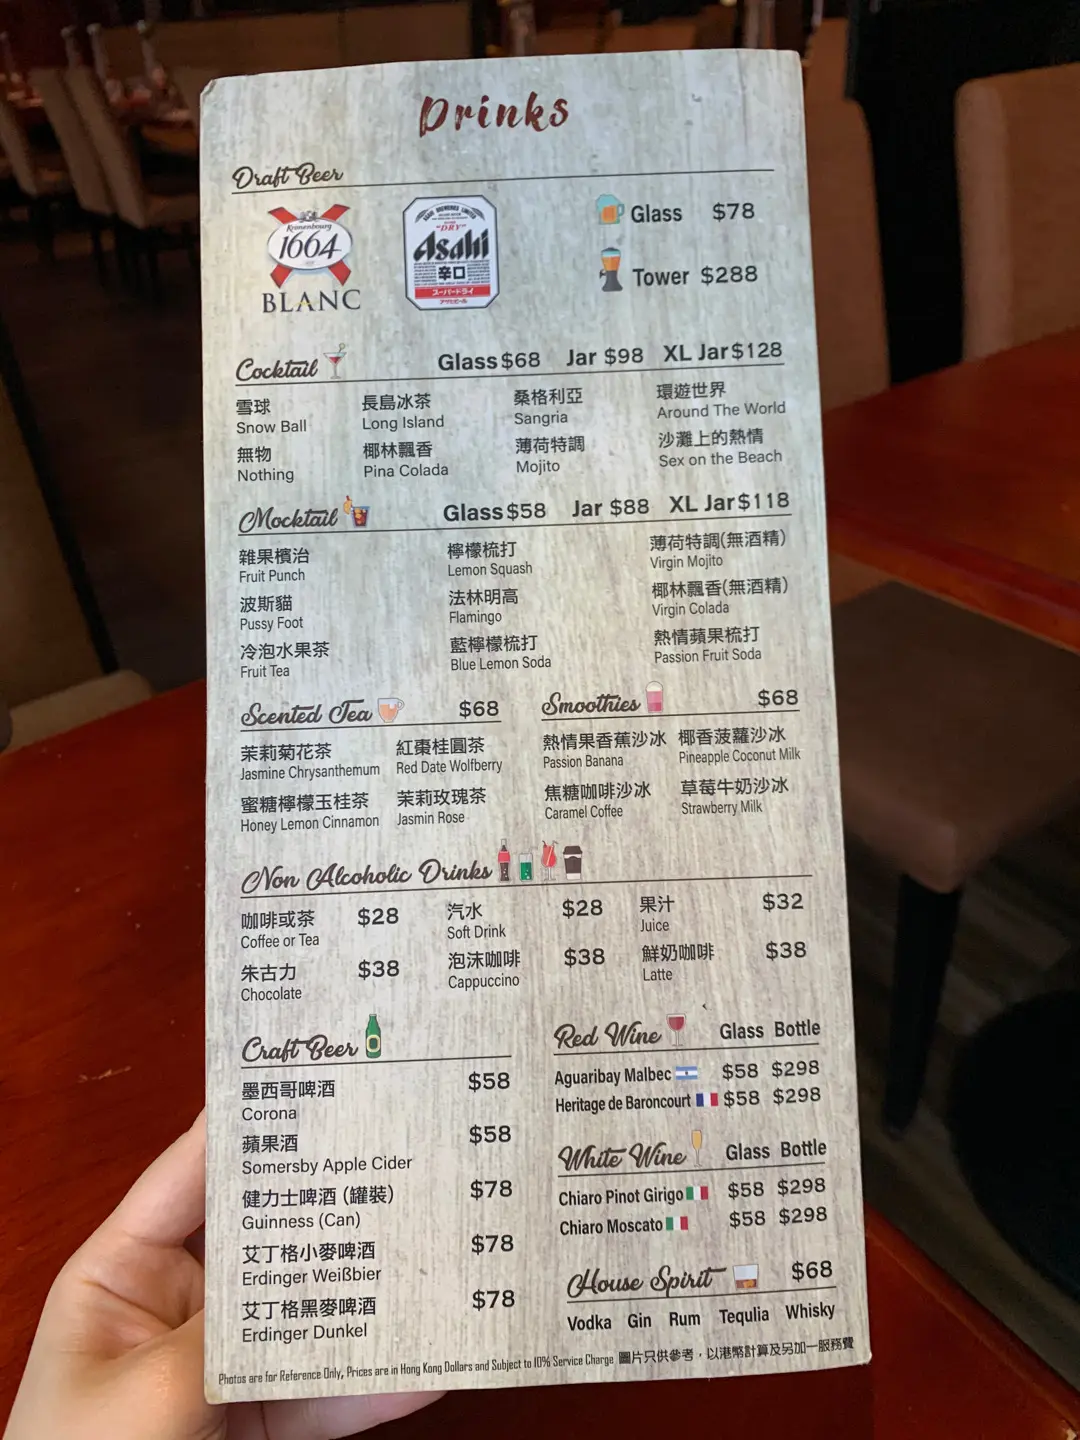 Drinks
Draft Beer
Kronenbourg
1664
BLANC
ASAHI BREWERIES LIMITED
"DRY"
Asahi
辛口
スーパードライ
アサヒビール
Glass $78
Tower $288
Cocktail Glass $68 Jar $98 XL Jar $128
雪球 長島冰茶 桑格利亞 環遊世界
Snow Ball Long Island Sangria Around The World
無物 椰林飄香 薄荷特調 沙灘上的熱情
Nothing Pina Colada Mojito Sex on the Beach
Mocktail Glass $58 Jar $88 XL Jar $118
雜果檳治 檸檬梳打 薄荷特調(無酒精)
Fruit Punch Lemon Squash Virgin Mojito
波斯貓 法林明高 椰林飄香(無酒精)
Pussy Foot Flamingo Virgin Colada
冷泡水果茶 藍檸檬梳打 熱情蘋果梳打
Fruit Tea Blue Lemon Soda Passion Fruit Soda
Scented Tea $68
茉莉菊花茶 紅棗桂圓茶
Jasmine Chrysanthemum Red Date Wolfberry
蜜糖檸檬玉桂茶 茉莉玫瑰茶
Honey Lemon Cinnamon Jasmin Rose
Smoothies $68
熱情果香蕉沙冰 椰香菠蘿沙冰
Passion Banana Pineapple Coconut Milk
焦糖咖啡沙冰 草莓牛奶沙冰
Caramel Coffee Strawberry Milk
Non Alcoholic Drinks
咖啡或茶 $28 汽水 $28 果汁 $32
Coffee or Tea Soft Drink Juice
朱古力 $38 泡沫咖啡 $38 鮮奶咖啡 $38
Chocolate Cappuccino Latte
Craft Beer
墨西哥啤酒 $58
Corona
蘋果酒 $58
Somersby Apple Cider
健力士啤酒 (罐裝) $78
Guinness (Can)
艾丁格小麥啤酒 $78
Erdinger Weißbier
艾丁格黑麥啤酒 $78
Erdinger Dunkel
Red Wine Glass Bottle
Aguaribay Malbec $58 $298
Heritage de Baroncourt $58 $298
White Wine Glass Bottle
Chiaro Pinot Girigo $58 $298
Chiaro Moscato $58 $298
House Spirit $68
Vodka Gin Rum Tequlia Whisky
Photos are for Reference Only, Prices are in Hong Kong Dollars and Subject to 10% Service Charge 圖片只供參考，以港幣計算及另加一服務費